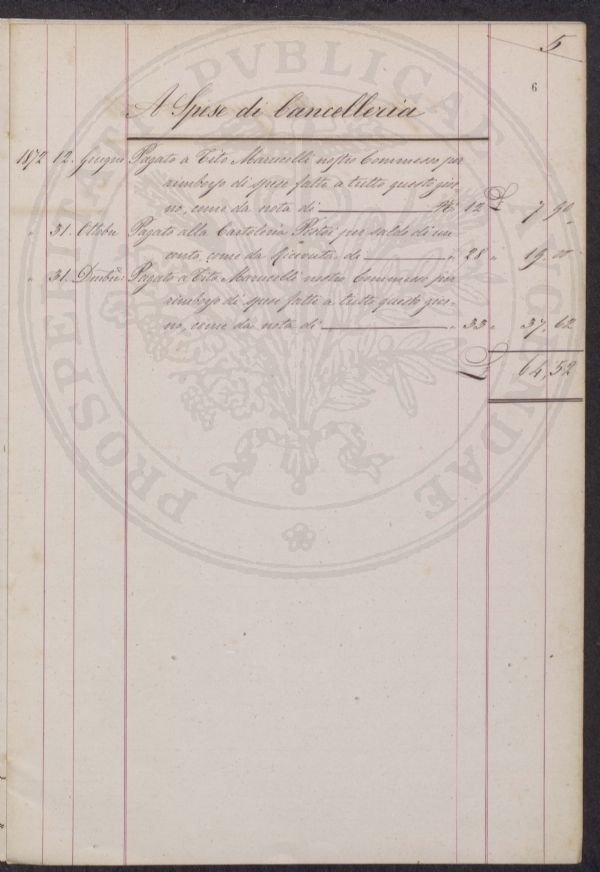 5
6
A Spese di Cancelleria
1872 12. Giugno Pagato a Tito Marucelli nostro Commesso per
rimborso di spese fatte a tutto questo gior-
no, come da nota di № 12 L 7, 90
" 31. Ottobre Pagato alla Cartoleria per saldo di un
conto, come da Ricevuta di " 28 " 19, 00
" 31. Dicembre: Pagato a Tito Marucelli nostro Commesso per
rimborso di spese fatte a tutto questo gior-
no, come da nota di " 33 " 37, 62
L 64, 52
PROSPERITATI PVBLICAE AVGENDAE